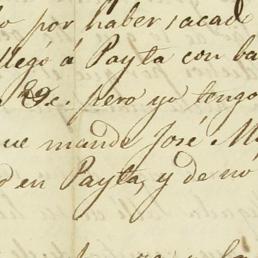 por haber sacado
llegó á Payta con ba
&c. pero yo tengo
que mande José M
d en Payta, y de no